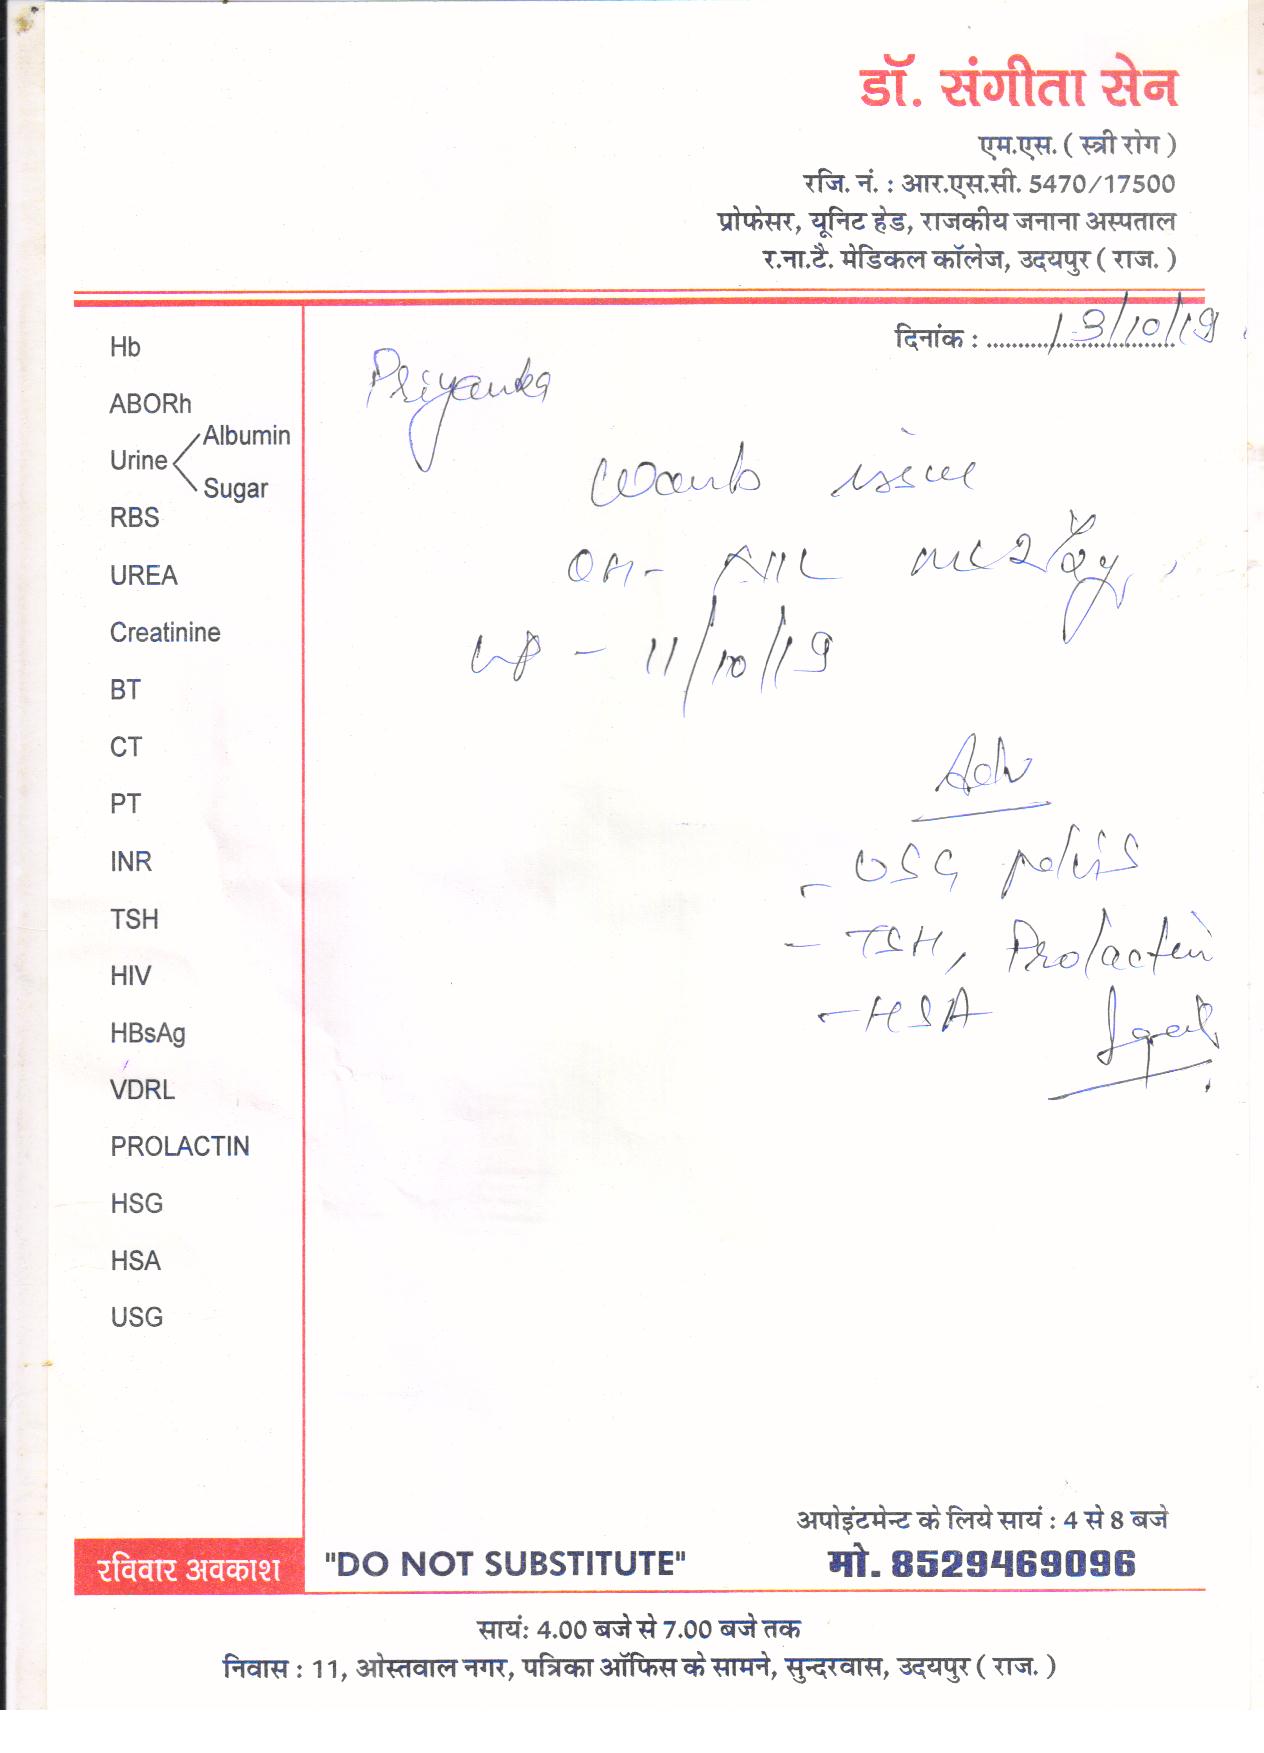 डॉ. संगीता सेन
एम.एस. ( स्त्री रोग )
रजि. नं. : आर.एस.सी. 5470/17500
प्रोफेसर, यूनिट हेड, राजकीय जनाना अस्पताल
र.ना.टै. मेडिकल कॉलेज, उदयपुर ( राज. )
दिनांक : 13/10/19
Hb
ABORh
Urine
Albumin
Sugar
RBS
UREA
Creatinine
BT
CT
PT
INR
TSH
HIV
HBsAg
VDRL
PROLACTIN
HSG
HSA
USG
Priyanka
wants issue
OH- NIL
- 11/10/19
Adv
- USG pelvis
- TSH, Prolactin
- HSA
अपोइंटमेन्ट के लिये सायं : 4 से 8 बजे
रविवार अवकाश
"DO NOT SUBSTITUTE"
मो. 8529469096
सायं: 4.00 बजे से 7.00 बजे तक
निवास : 11, ओस्तवाल नगर, पत्रिका ऑफिस के सामने, सुन्दरवास, उदयपुर ( राज. )